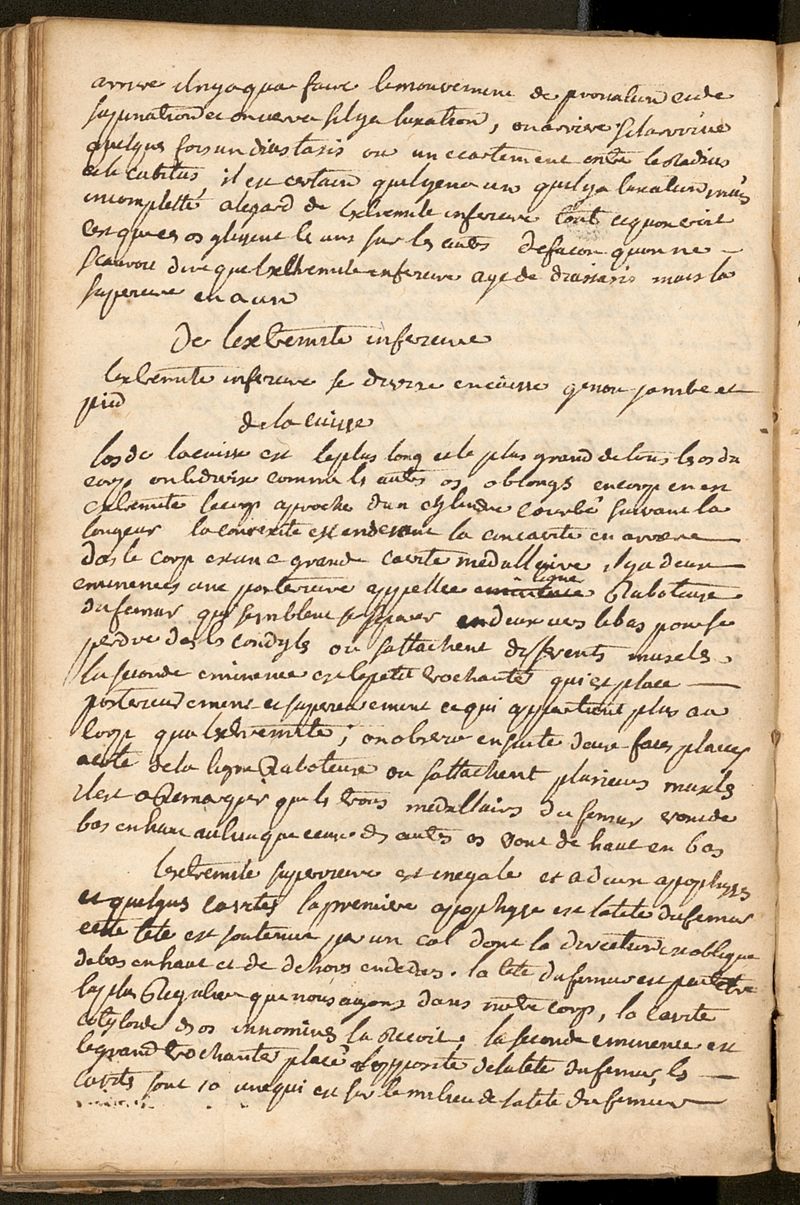 arrive ilnyaqua faire lemouvement de pronation et de
supination et on verra silya luxation, on arrive
quelque fois un diastasis ou un ecartement entre le Radius
et le cubitus il est certain quilyena un quilya luxation mais
incomplette alegard de lextremite inferieure tout cequonvoit
cest que ces os glissent les uns sur les autres defacon quonne
scauroit dire que lextremite inferieure aye de diastasis mais la
superieure en a un
De lextremite inferieure
lextremite inferieure se divise en cuisse genou jambe et
pied
de la cuisse
los de lacuisse est le plus long et le plus grand de tous les os du
corp on le divise comme les autres os oblongs en corp en en
extremite le corp aproche dun cylindre courbé suivant sa
longeur la convexite est endevant la concavite en arriere
dans le corp est une grande cavite medullaire ilya deux
eminences une posterieure appellee ligne Raboteuse
du femur qui semblent se separer en deux vers le bas pour se
perdre dans les condyles ou sattachent differents muscles
la seconde eminence est le petit trochanter qui est place
posterieurement et superieurement ce qui appartient plus au
corp qua lextremite; on observe ensuite deux faces placees
a cote de la ligne Raboteuse ou sattachent plusieurs muscles
il est a Remarquer que les trous medullaires du femur vont de
bas en haut au lieu que ceux des autres os vont de haut en bas
lextremite superieure est inegale et a deux apophyses
et quelques cavites la premiere apophyse est la tete du femur
cette tete est soutenue par un col dont la direction est oblique
de bas en haut et de dehors en dedans. la tete du femur est peut etre
la plus Reguliere que nous ayons dans notre corp, la cavite
cotyloide des os innominés la Recoit; la seconde eminence est
le grand trochanter placé a lopposite de la tete du femur, les
cavites sont 1o une qui est sur le milieu de la tete du femur